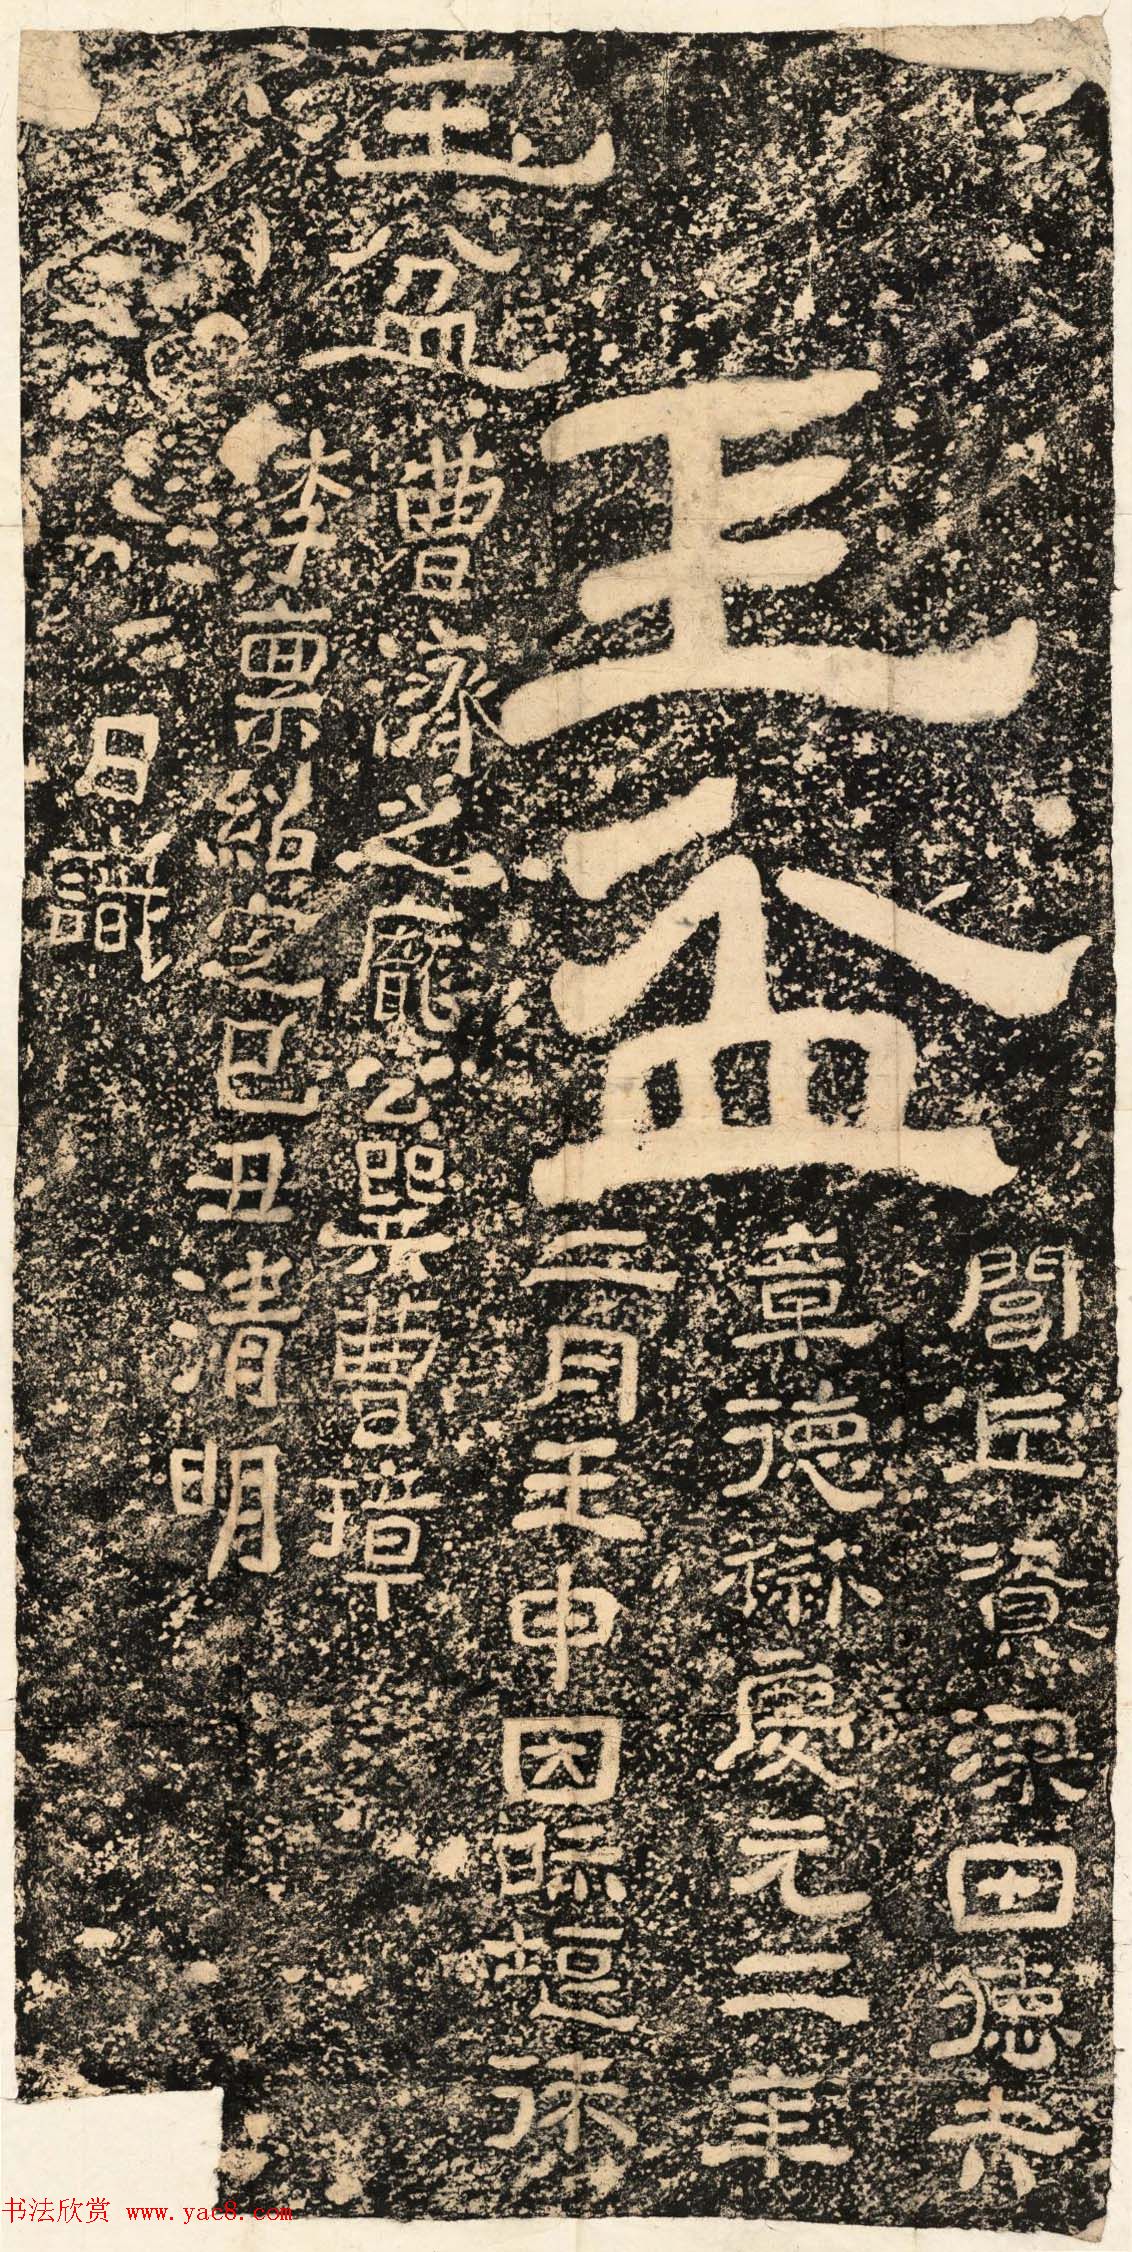 玉盆
閭丘資深田德夫
章德楙慶元二年
二月壬申因眎堰徠
玉盆
曹濟之龐公巽曹璋
李稟紹定己丑清明
日識
书法欣赏 www.yac8.com